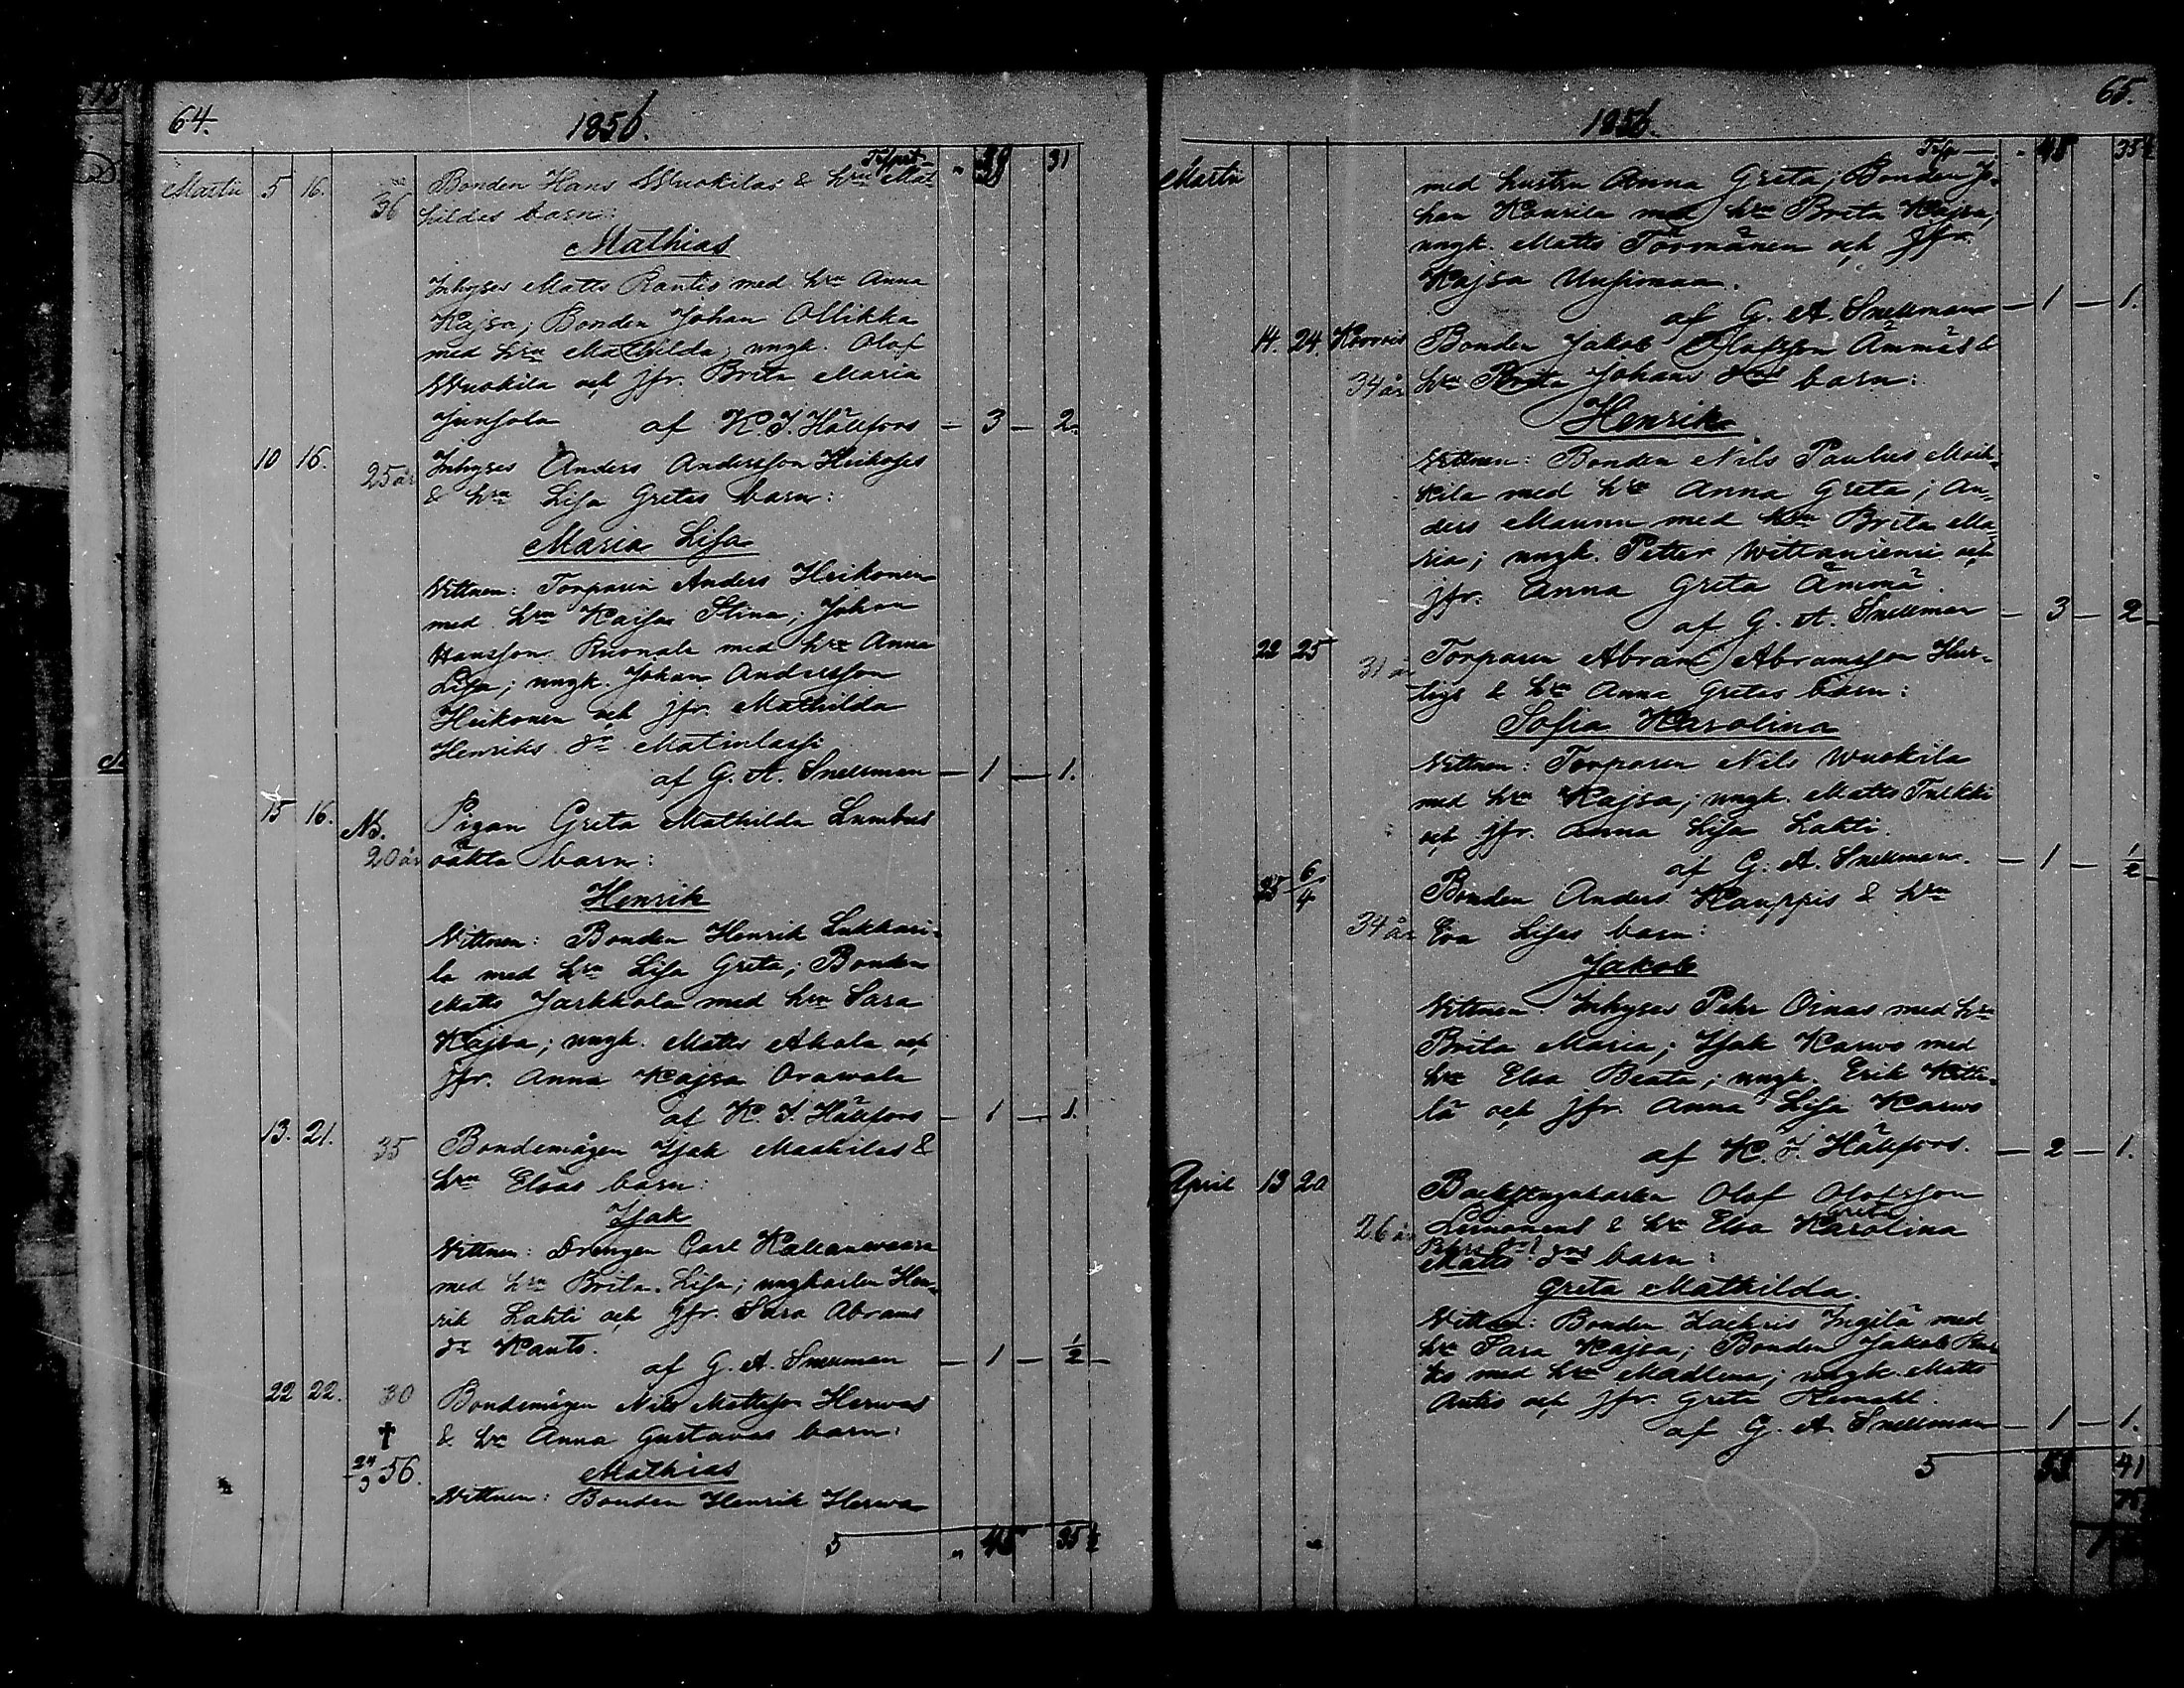 64.
1856.
Tspt " 38 31
Martii 5 16. 36 Bonden Hans Wuokilas & hru Mat-
hildas barn:
Mathias
Inhyses Matts Rantis med hru Anna
Kajsa; Bonden Johan Ollikka
med hru Mathilda; ungk. Olof
Wuokila och jfr. Brita Maria
Junsola af K. J. Hällfors — 3 — 2.
10 16. 25 år Inhyses Anders Andersson Heikoses
& hru Lisa Gretas barn:
Maria Lisa
Vittnen: Torparen Anders Heikonen
med hru Kajsa Stina; Johan
Hansson Ruonala med hru Anna
Lisa; ungk. Johan Andersson
Heikonen och jfr. Mathilda
Henriks dr Matinlassi
af G. A. Snellman — 1 — 1.
15 16. Nb. Pigan Greta Mathilda Lumbus
20 år oäkta barn:
Henrik
Vittnen: Bonden Henrik Lukkari-
la med hru Lisa Greta; Bonden
Matts Jarkkola med hru Sara
Kajsa; ungk. Matts Ahola och
jfr. Anna Kajsa Orawala
af K. J. Hällfors — 1 — 1.
13. 21. 35 Bondemågen Isak Maskilas &
hru Elsas barn:
Isak
Vittnen: Drengen Carl Kallanwaara
med hru Brita Lisa; ungkarlen Hen-
rik Lahti och jfr. Sara Abrams
dr Kauto.
af G. A. Snellman — 1 — 1/2 —
22 22. 30 Bondemågen Nils Mattsson Herwas
† & hru Anna Gustavas barn:
24/3 56. Mathias
Vittnen: Bonden Henrik Herwa
5 " 45 35 1/2
65.
1856.
Tsp — " 45 35 1/2
Martii med hustru Anna Greta; Bonden Jo-
han Kourila med hru Brita Kajsa;
ungk. Matts Törmänen och jfr.
Kajsa Uusimaa.
af G. A. Snellman — 1 — 1.
14. 24. Bonden Jakob Olofsson Ämmäs &
34 år hru Brita Johans dr barn:
Henrik
Vittnen: Bonden Nils Paulus
kila med hru Anna Greta; An-
ders Maunu med hru Brita Ma-
ria; ungk. Petter Wittaniemi och
jfr. Anna Greta Ämmä.
af G. A. Snellman — 3 — 2
22 25 31 år Torparen Abram Abramsson Hur-
tigs & hru Anna Gretas barn:
Sofia Karolina
Vittnen: Torparen Nils Wuokila
med hru Kajsa; ungk. Matts Tulkki
och jfr. Anna Lisa Lahti.
af G. A. Snellman. — 1 — 1/2
25 6/4 Bonden Anders Kauppis & hru
34 år Eva Lisas barn:
Jakob
Vittnen. Inhyses Pehr Oinas med hru
Brita Maria; Isak Karwo med
hru Elsa Beata; ungk. Erik Kitti-
lä och jfr. Anna Lisa Karwo
af K. J. Hällfors. — 2 — 1.
April 13 20 Backstugukarlen Olof Olofsson
Greta
26 år & hru Elsa Karolina
Pehrs dr!
Matts drs barn:
Greta Mathilda.
Vittnen: Bonden Zachris Ingilä med
hru Sara Kajsa; Bonden Jakob
ko med hru Madlena; ungk. Matts
Antis och jfr. Greta
af G. A. Snellman — 1 — 1.
5 53 41